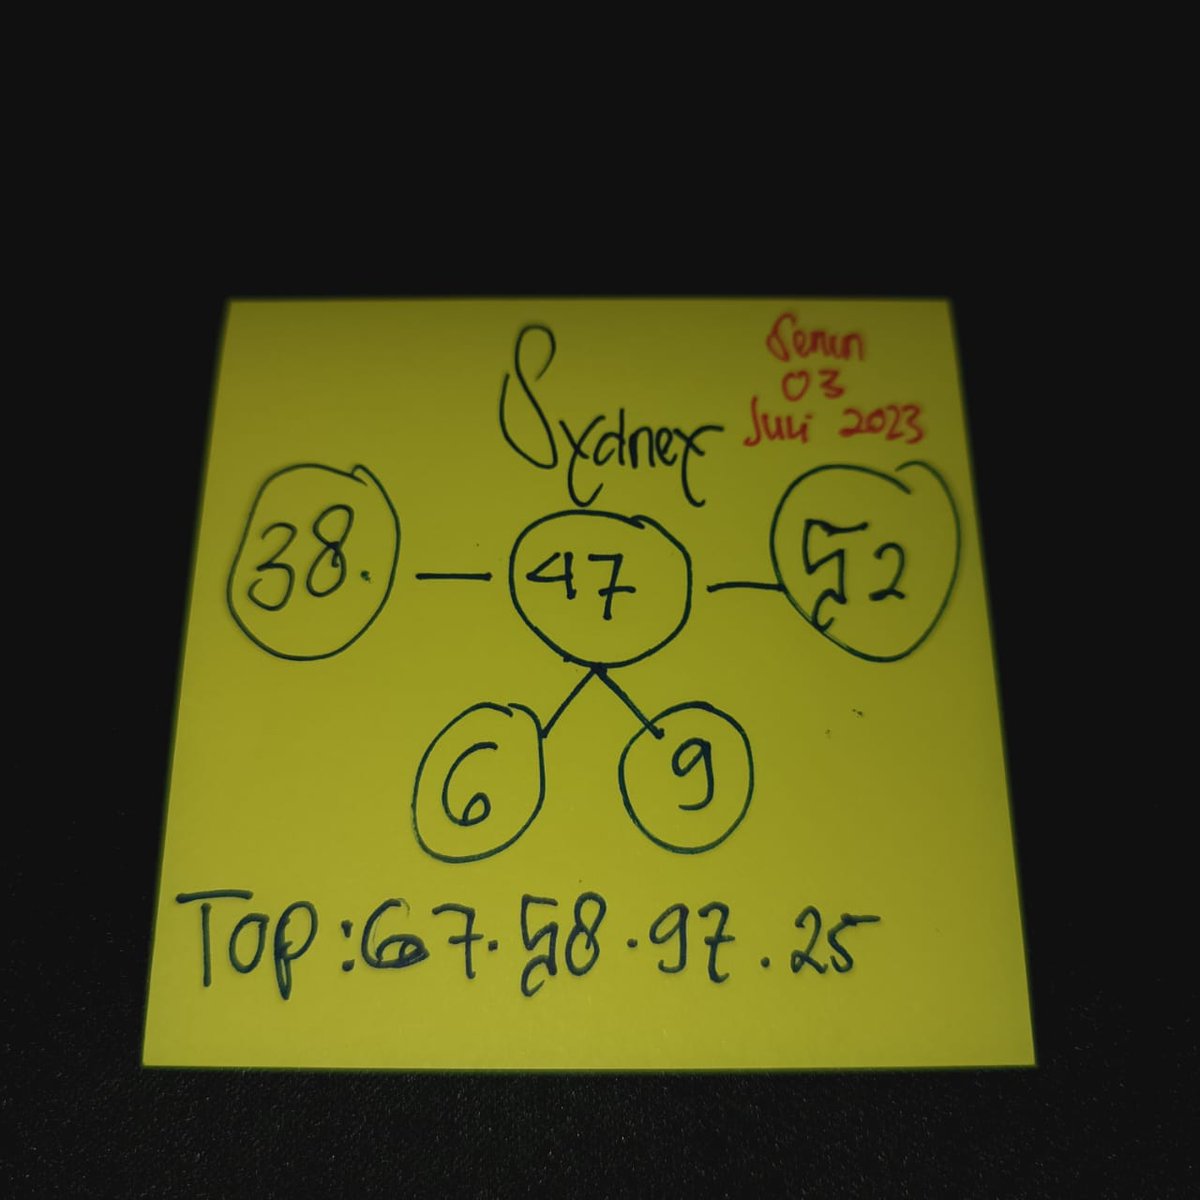 Sydney
Senin
03
Juli 2023
38. — 47 — 52
6 9
Top : 67 . 58 . 97 . 25